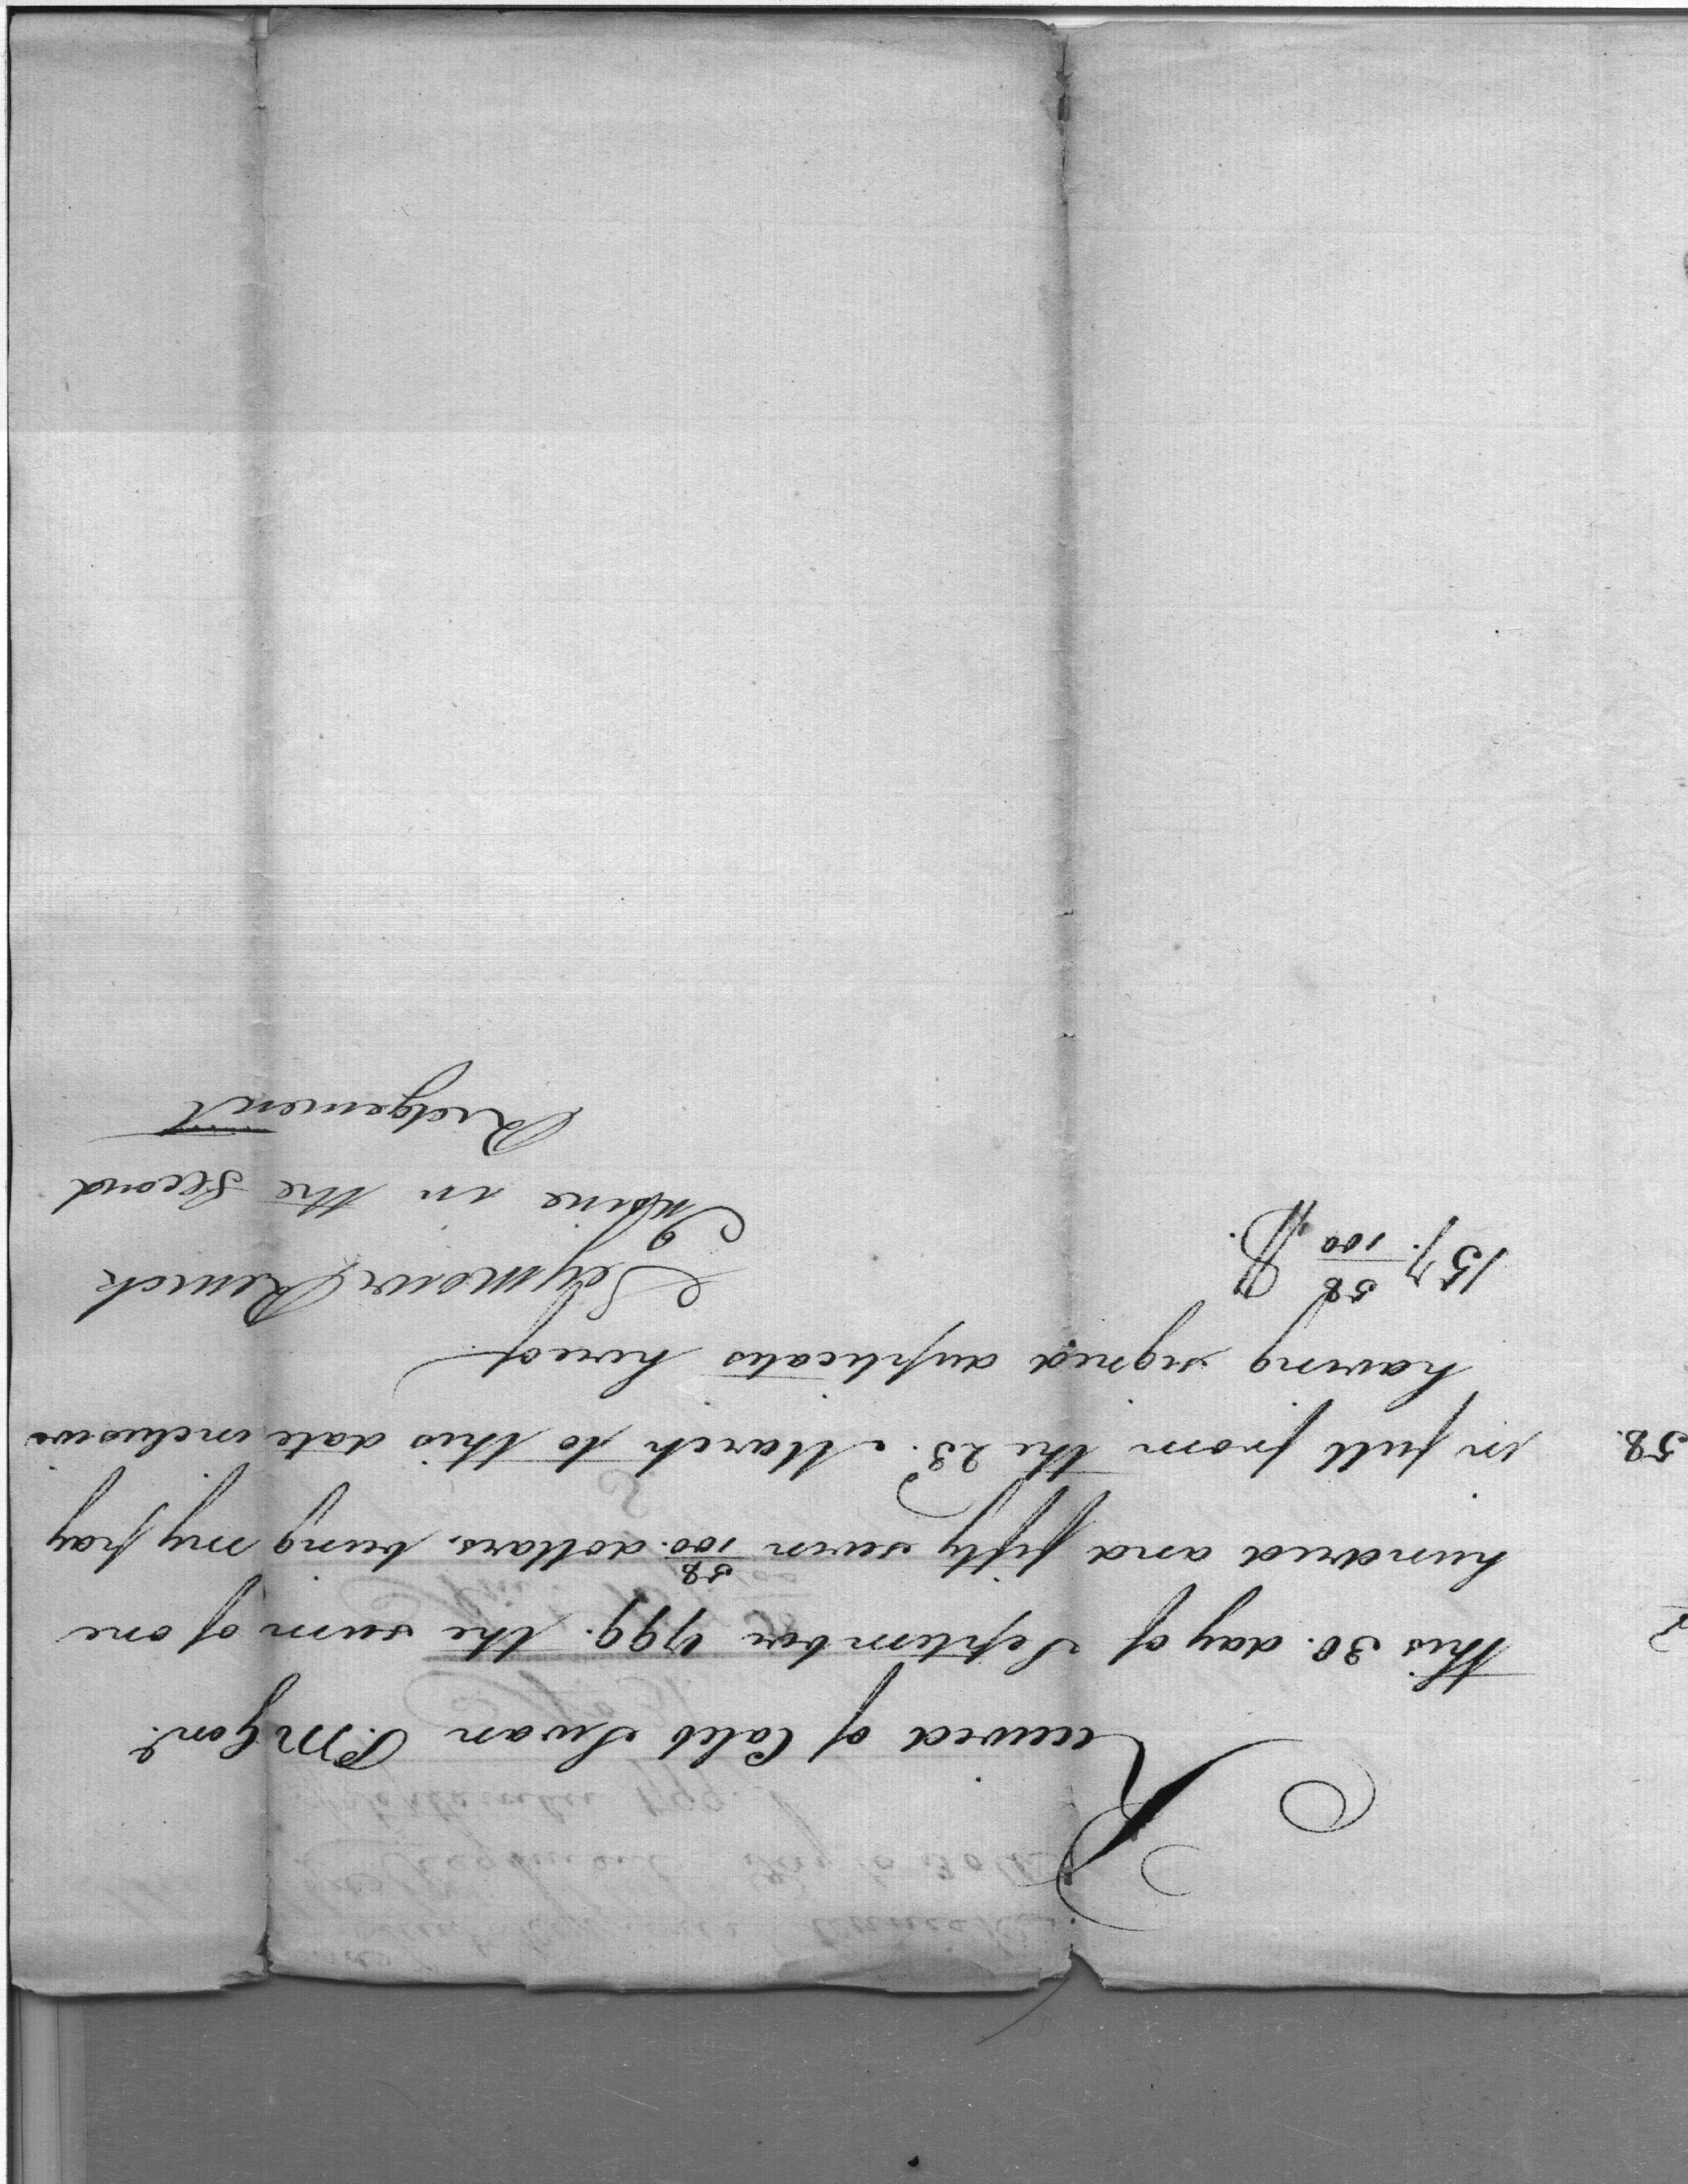 Received of Caleb Swan P.M Genl.
this 30. day of September 1799. the sum of one
hundred and fifty seven 58/100. dollars. being my pay
in full from the 23d. March to this date inclusive
having signed duplicates hereof
157. 58/100 D.
Seymour Renick
Ensine in the Second
Ridgement
58.